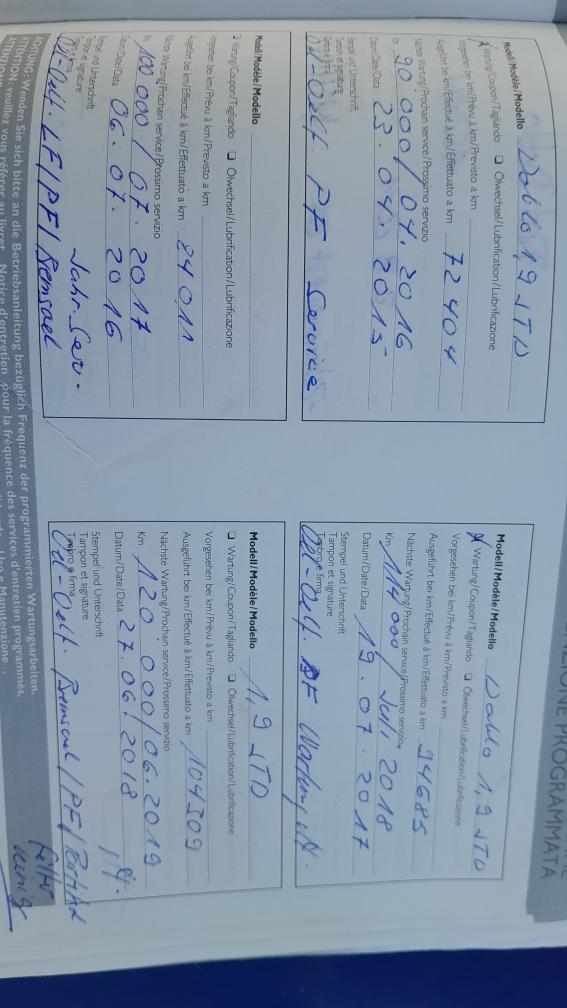 ZIONE PROGRAMMATA
Modell/Modèle/Modello Doblo 1,9 JTD
Wartung/Coupon/Tagliando ❑ Ölwechsel/Lubrification/Lubrificazione
Vorgesehen bei km/Prévu à km/Previsto a km
Ausgeführt bei km/Effectué à km/Effettuato a km 72404
Nächste Wartung/Prochain service/Prossimo servizio
Km 90.000 / 04.2016
Datum/Date/Data 23.04.2015
Stempel und Unterschrift
Tampon et signature
Timbro e firma
Öl-Oelf. PF Service
Modell/Modèle/Modello Doblo 1,9 JTD
Wartung/Coupon/Tagliando ❑ Ölwechsel/Lubrification/Lubrificazione
Vorgesehen bei km/Prévu à km/Previsto a km
Ausgeführt bei km/Effectué à km/Effettuato a km 94685
Nächste Wartung/Prochain service/Prossimo servizio
Km 114 000 / Juli 2018
Datum/Date/Data 19.07.2017
Stempel und Unterschrift
Tampon et signature
Timbro e firma
Öl-Oelf. PF Wartung
Modell/Modèle/Modello
❑ Wartung/Coupon/Tagliando ❑ Ölwechsel/Lubrification/Lubrificazione
Vorgesehen bei km/Prévu à km/Previsto a km
Ausgeführt bei km/Effectué à km/Effettuato a km 84011
Nächste Wartung/Prochain service/Prossimo servizio
Km 100 000 / 07.2017
Datum/Date/Data 06.07.2016
Stempel und Unterschrift
Tampon et signature
Timbro e firma
Jahr-Ser.
Öl-Oelf. LF/PF/Bemsoel
Modell/Modèle/Modello 1,9 JTD
❑ Wartung/Coupon/Tagliando ❑ Ölwechsel/Lubrification/Lubrificazione
Vorgesehen bei km/Prévu à km/Previsto a km
Ausgeführt bei km/Effectué à km/Effettuato a km 104309
Nächste Wartung/Prochain service/Prossimo servizio
Km 120 000 / 06.2019
Datum/Date/Data 27.06.2018
Stempel und Unterschrift
Tampon et signature
Timbro e firma
Öl-Oelf. Bemsoel/PF/
ACHTUNG: Wenden Sie sich bitte an die Betriebsanleitung bezüglich Frequenz der programmierten Wartungsarbeiten.
ATTENTION: veuillez vous référer au livret "Notice d'entretien" pour la fréquence des services d'entretien programmés.
Uso e Manutenzione